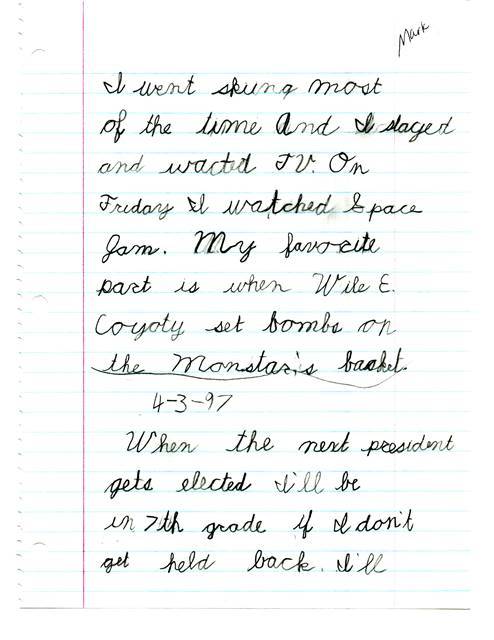 Mark
I went skiing most
of the time And I stayed
and wacted TV. On
Friday I watched Space
Jam. My favorite
part is when Wile E.
Coyoty set bombs on
the Monstar's basket.
4-3-97
When the next president
gets elected I'll be
in 7th grade if I don't
get held back. I'll